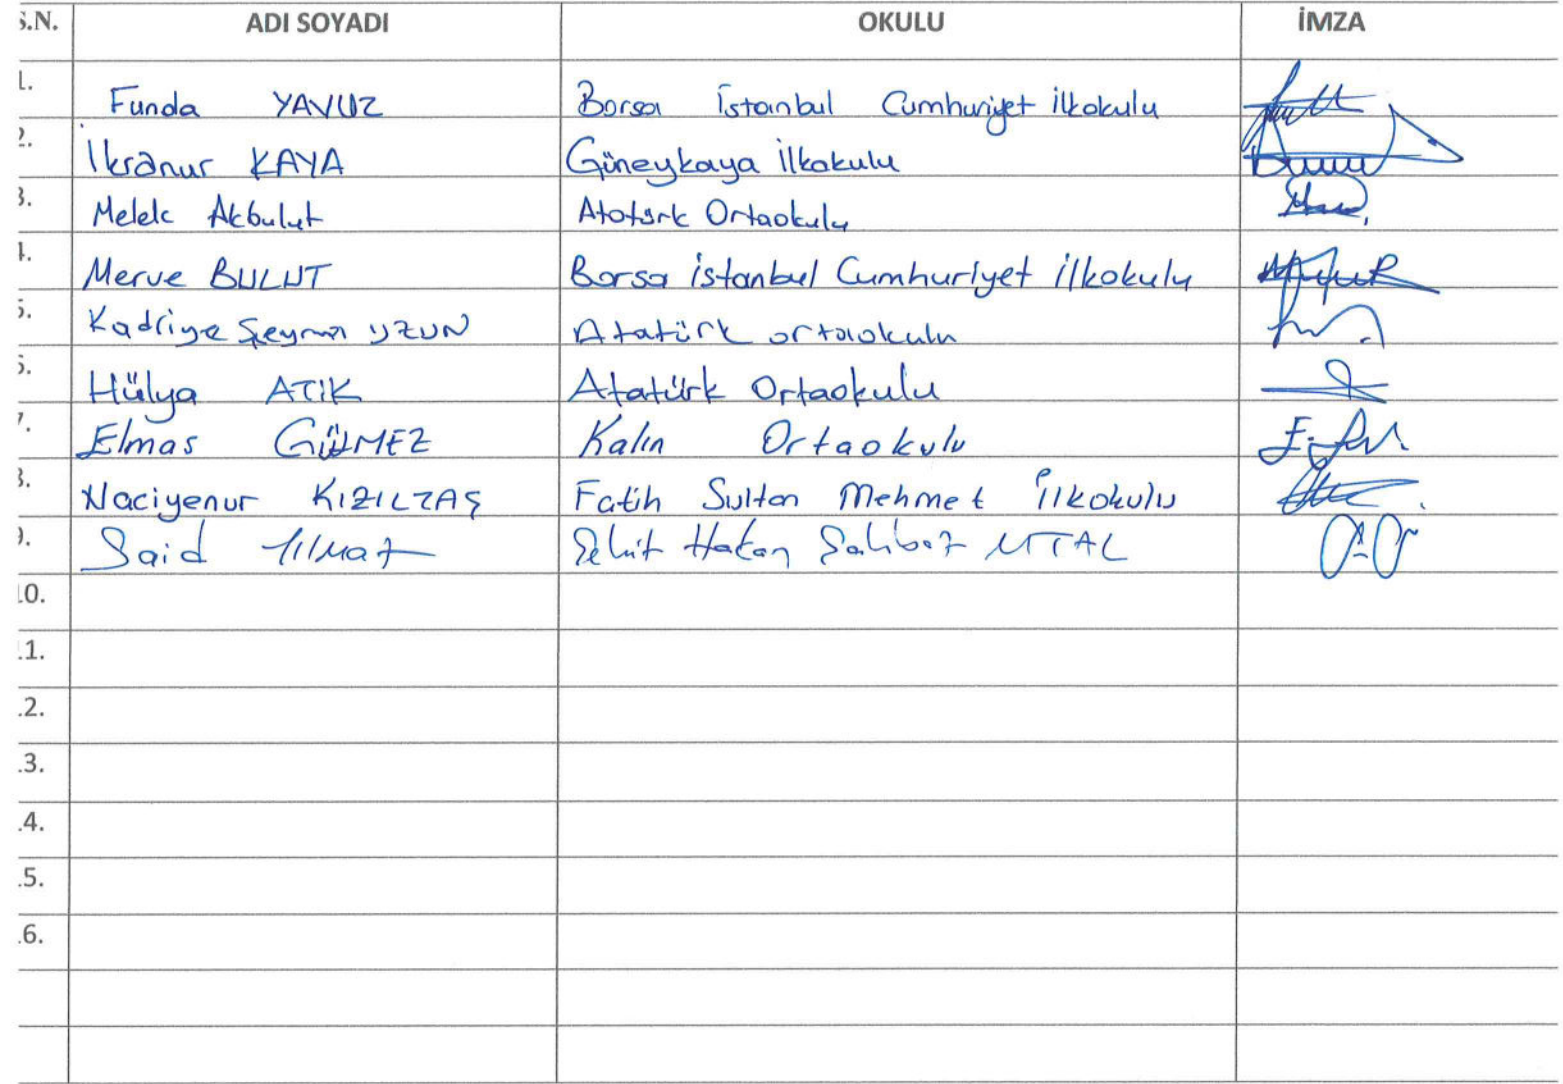 S.N. ADI SOYADI OKULU İMZA
1. Funda YAVUZ Borsa İstanbul Cumhuriyet İlkokulu
2. İkranur KAYA Güneykaya İlkokulu
3. Melek Akbulut Atatürk Ortaokulu
4. Merve BULUT Borsa İstanbul Cumhuriyet İlkokulu
5. Kadriye Şeyma UZUN Atatürk ortaokulu
6. Hülya ATİK Atatürk Ortaokulu
7. Elmas GÜLMEZ Kalın Ortaokulu
8. Naciyenur KIZILTAŞ Fatih Sultan Mehmet İlkokulu
9. Said Yılmaz Şehit Hakan MTAL
10.
11.
12.
13.
14.
15.
16.